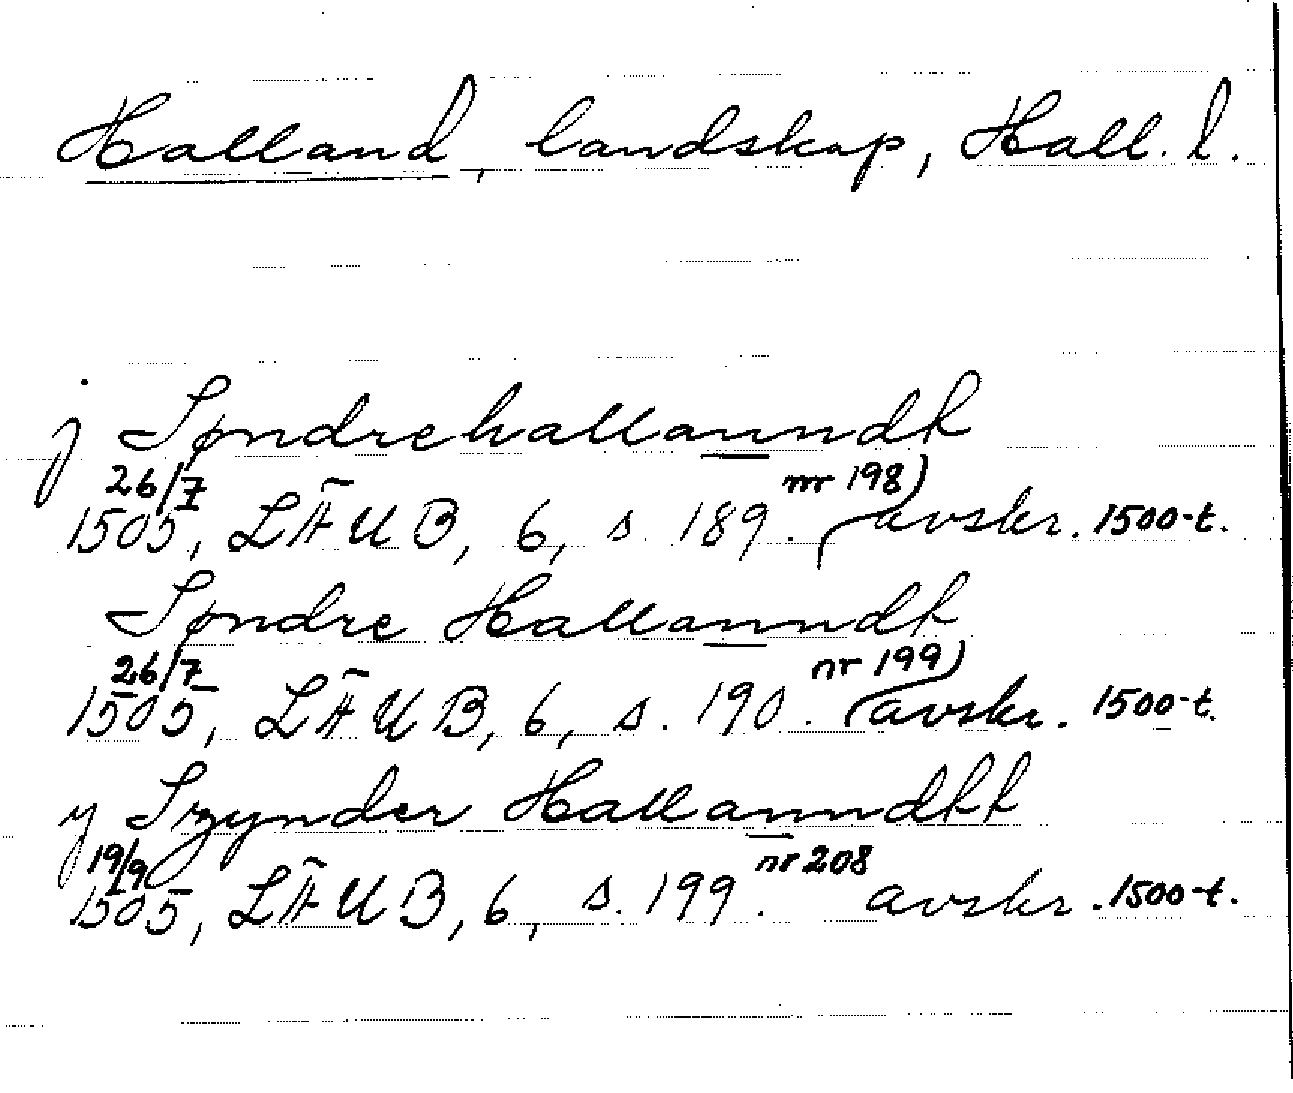 Halland, landskap, Hall. l.
j Søndrehallanndh
26/7 nr 198)
1505, LÄUB, 6, s. 189. avskr. 1500-t.
Søndre Hallanndh
26/7 nr 199)
1505, LÄUB, 6, s. 190. avskr. 1500-t.
y Szynder Hallanndhh
19/9 nr 208
1505, LÄUB, 6, s. 199. avskr. 1500-t.